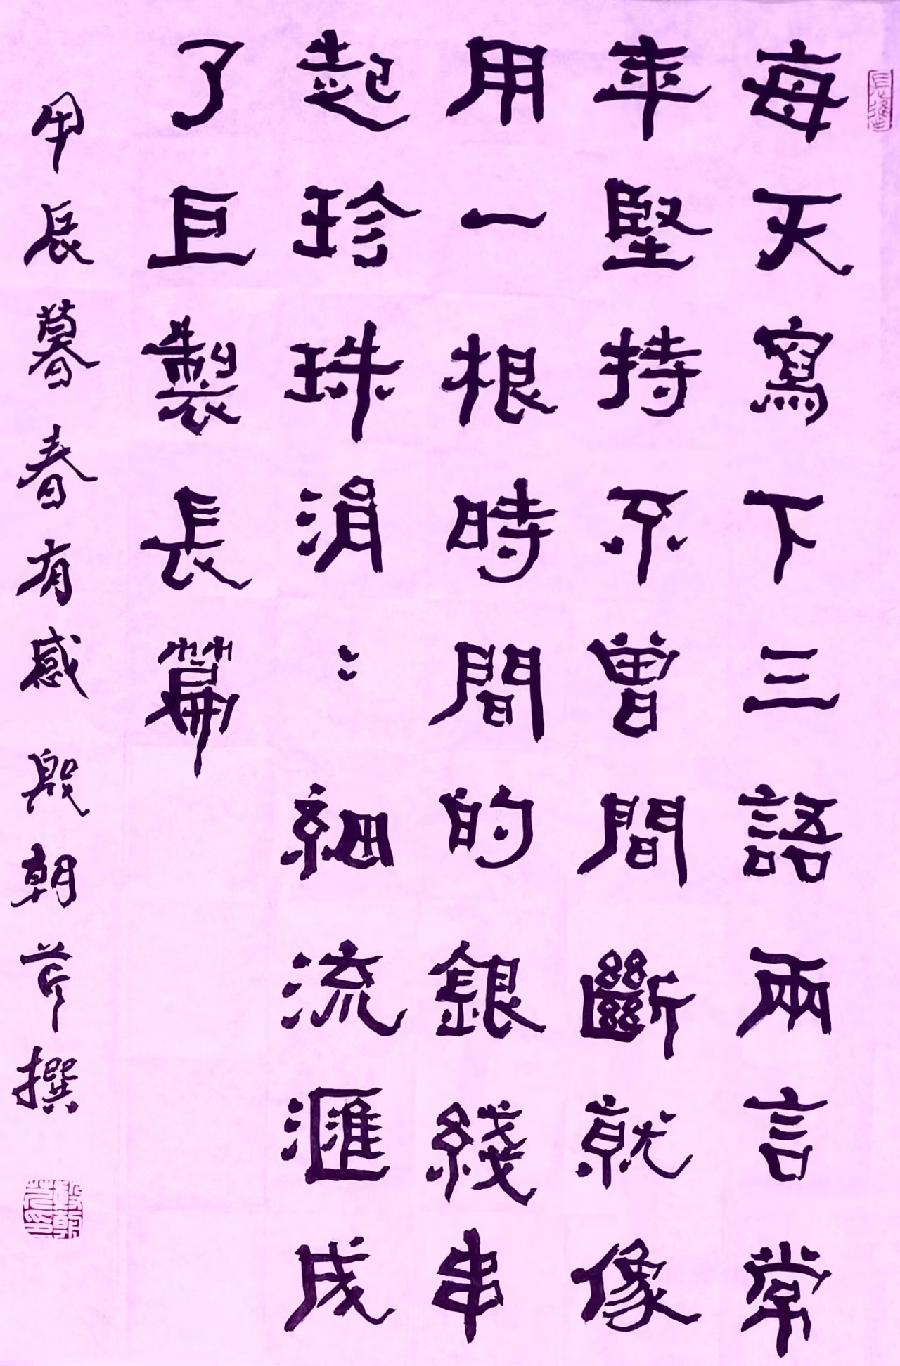 每天寫下三語兩言常
年堅持不曾間斷就像
用一根時間的銀綫串
起珍珠涓〻細流滙成
了巨製長篇
甲辰暮春有感 殷朝芹撰